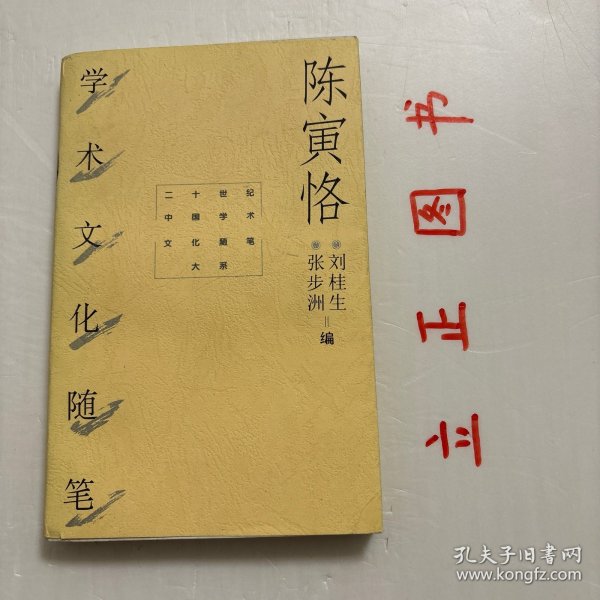 陈寅恪
学术文化随笔
二十世纪
中国学术
文化随笔
大系
刘桂生
张步洲
编
书图正立
孔夫子旧书网
www.kongfz.com